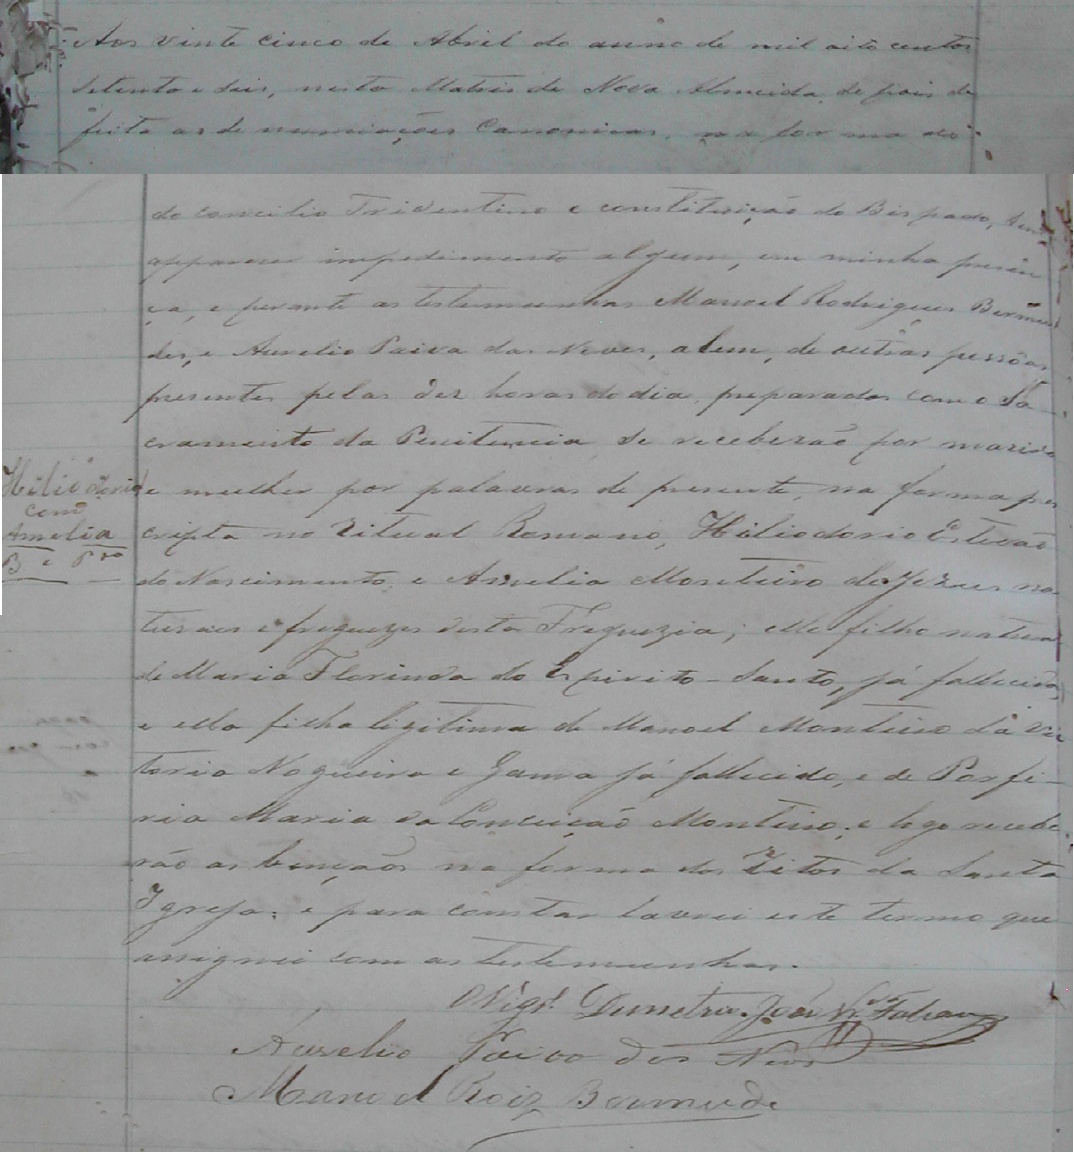 Aos vinte cinco de Abril do anno de mil oito centos
setenta e seis, nesta Matris de Nova Almeida, de pois de
feita as de nunciações Canonicas, na for ma do
do concilio Tridentino e constituição do Bispado, sem
apparecer impedimento algum, em minha presen
ça, e perante as testemunhas Manoel Rodrigues Bermu
des, e Aurelio Paiva das Neves, alem, de outras pessôas
presentes pelas dez horas do dia, preparados com o Sa
cramento da Penitencia, se receberão por marido
e mulher por palavras de presente, na forma pres
cripta no Ritual Romano, Heliodorio Estevão
do Nascimento, e Amelia Monteiro de Jezus na
turaes e freguezes desta Freguezia; elle filho natural
de Maria Florinda do Espirito-Santo, já fallecida,
e ella filha ligitima de Manoel Monteiro da Vic
toria Nogueira e Gama já fallecido, e de Porfi-
ria Maria da Conceição Monteiro, e logo recebe
rão as bençaõs na forma dos Ritos da Santa
Igreja; e para constar lavrei este termo que
assignei com as testemunhas.
Heliodorio
com
Amelia
B e Pro
O Vigr.o João
Aurelio Paiva das Neves
Manoel Roiz Bermude